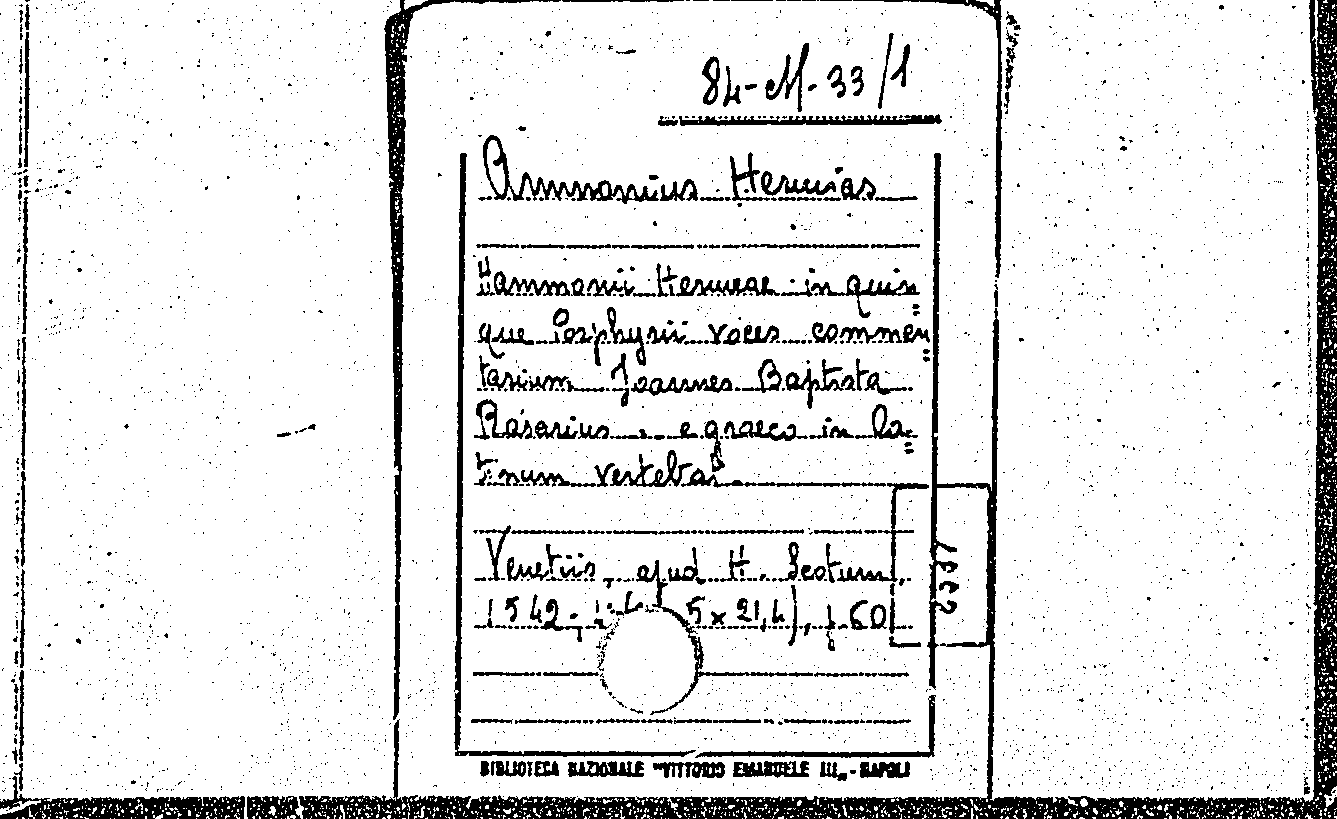 84-M-33/1
Ammonius Hermias
Hammonii Hermeae in quin
que Porphyrii voces commen
tarium Joannes Baptista
Rasarius .. e graeco in la-
tinum vertebat.
Venetiis, apud H. Scotum,
1542; 5 x 21,4), f. 60
BIBLIOTECA NAZIONALE "VITTORIO EMANUELE III„ - NAPOLI